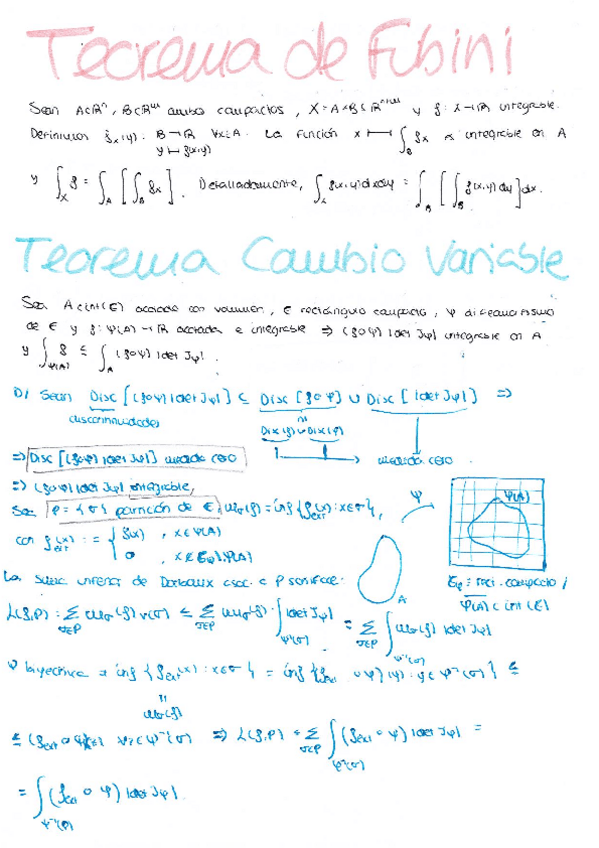 Teorema de Fubini
Sean A⊂ℝⁿ, B⊂ℝᵐ ambos compactos, X=A×B⊂ℝⁿ⁺ᵐ y f: X→ℝ integrable.
Definimos fₓ(y): B→ℝ ∀x∈A. La función x ↦ ∫_B fₓ es integrable en A
y ↦ f(x,y)
y ∫_X f = ∫_A [∫_B fₓ]. Detalladamente, ∫_X f(x,y)dxdy = ∫_A [∫_B f(x,y)dy]dx.
Teorema Cambio Variable
Sea A⊂int(E) acotado con volumen, E rectángulo compacto, φ difeomorfismo
de E y f: φ(A)→ℝ acotada e integrable ⇒ (f∘φ)|det Jφ| integrable en A
y ∫_φ(A) f ≤ ∫_A (f∘φ)|det Jφ|.
D/ Sean Disc[(f∘φ)|det Jφ|] ⊆ Disc[f∘φ] ∪ Disc[|det Jφ|] ⇒
discontinuidades
Disc(f) ∪ Disc(φ)
⇒ Disc[(f∘φ)|det Jφ|] medida cero
medida cero
⇒ (f∘φ)|det Jφ| integrable,
Sea P={σ} partición de E, m_σ(f)=inf{f_ext(x): x∈σ},
φ
φ(A)
con f_ext(x) := { f(x), x∈φ(A)
0, x∈E_φ\φ(A)
A
La suma inferior de Darboux asoc. a P satisface:
E_φ ≡ rect. compacto /
φ(A)⊂int(E)
L(f,P) = Σ_σ∈P m_σ(f) v(σ) ≤ Σ_σ∈P m_σ(f) · ∫_φ⁻¹(σ) |det Jφ| = Σ_σ∈P ∫_φ⁻¹(σ) m_σ(f) |det Jφ|
φ biyectiva ⇒ inf{f_ext(x): x∈σ} = inf{(f_ext∘φ)(y): y∈φ⁻¹(σ)} ≤
m_σ(f)
≤ (f_ext∘φ)(y) ∀y∈φ⁻¹(σ) ⇒ L(f,P) ≤ Σ_σ∈P ∫_φ⁻¹(σ) (f_ext∘φ) |det Jφ| =
= ∫_φ⁻¹(σ) (f_ext∘φ) |det Jφ|.